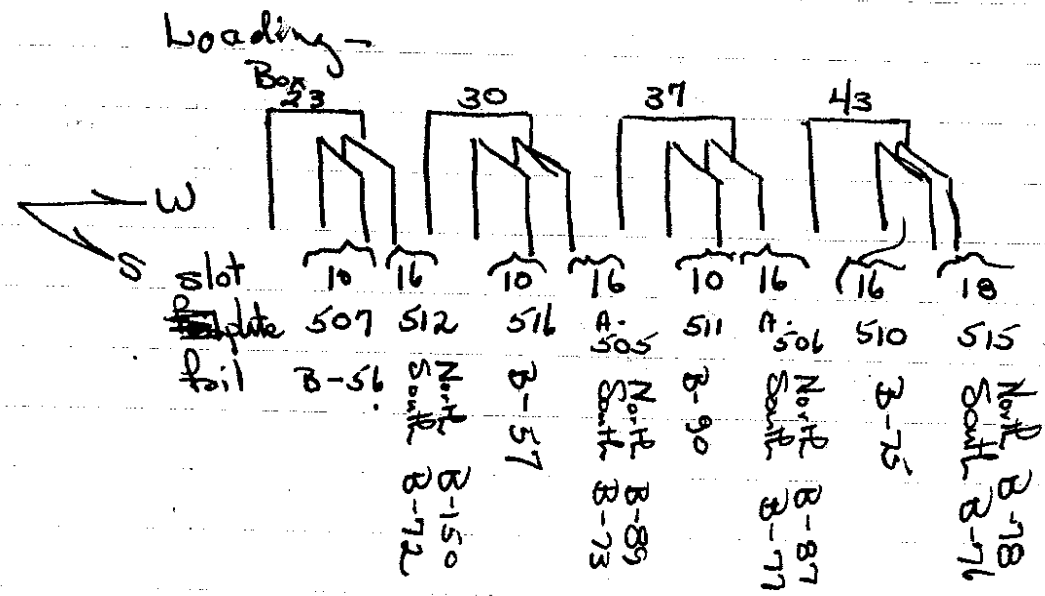 Loading -
Box
23 30 37 43
W
S
slot 10 16 10 16 10 16 16 18
plate 507 512 516 A-505 511 A-506 510 515
foil B-56 North B-150 South B-72 B-57 North B-89 South B-73 B-90 North B-87 South B-77 B-75 North B-78 South B-76